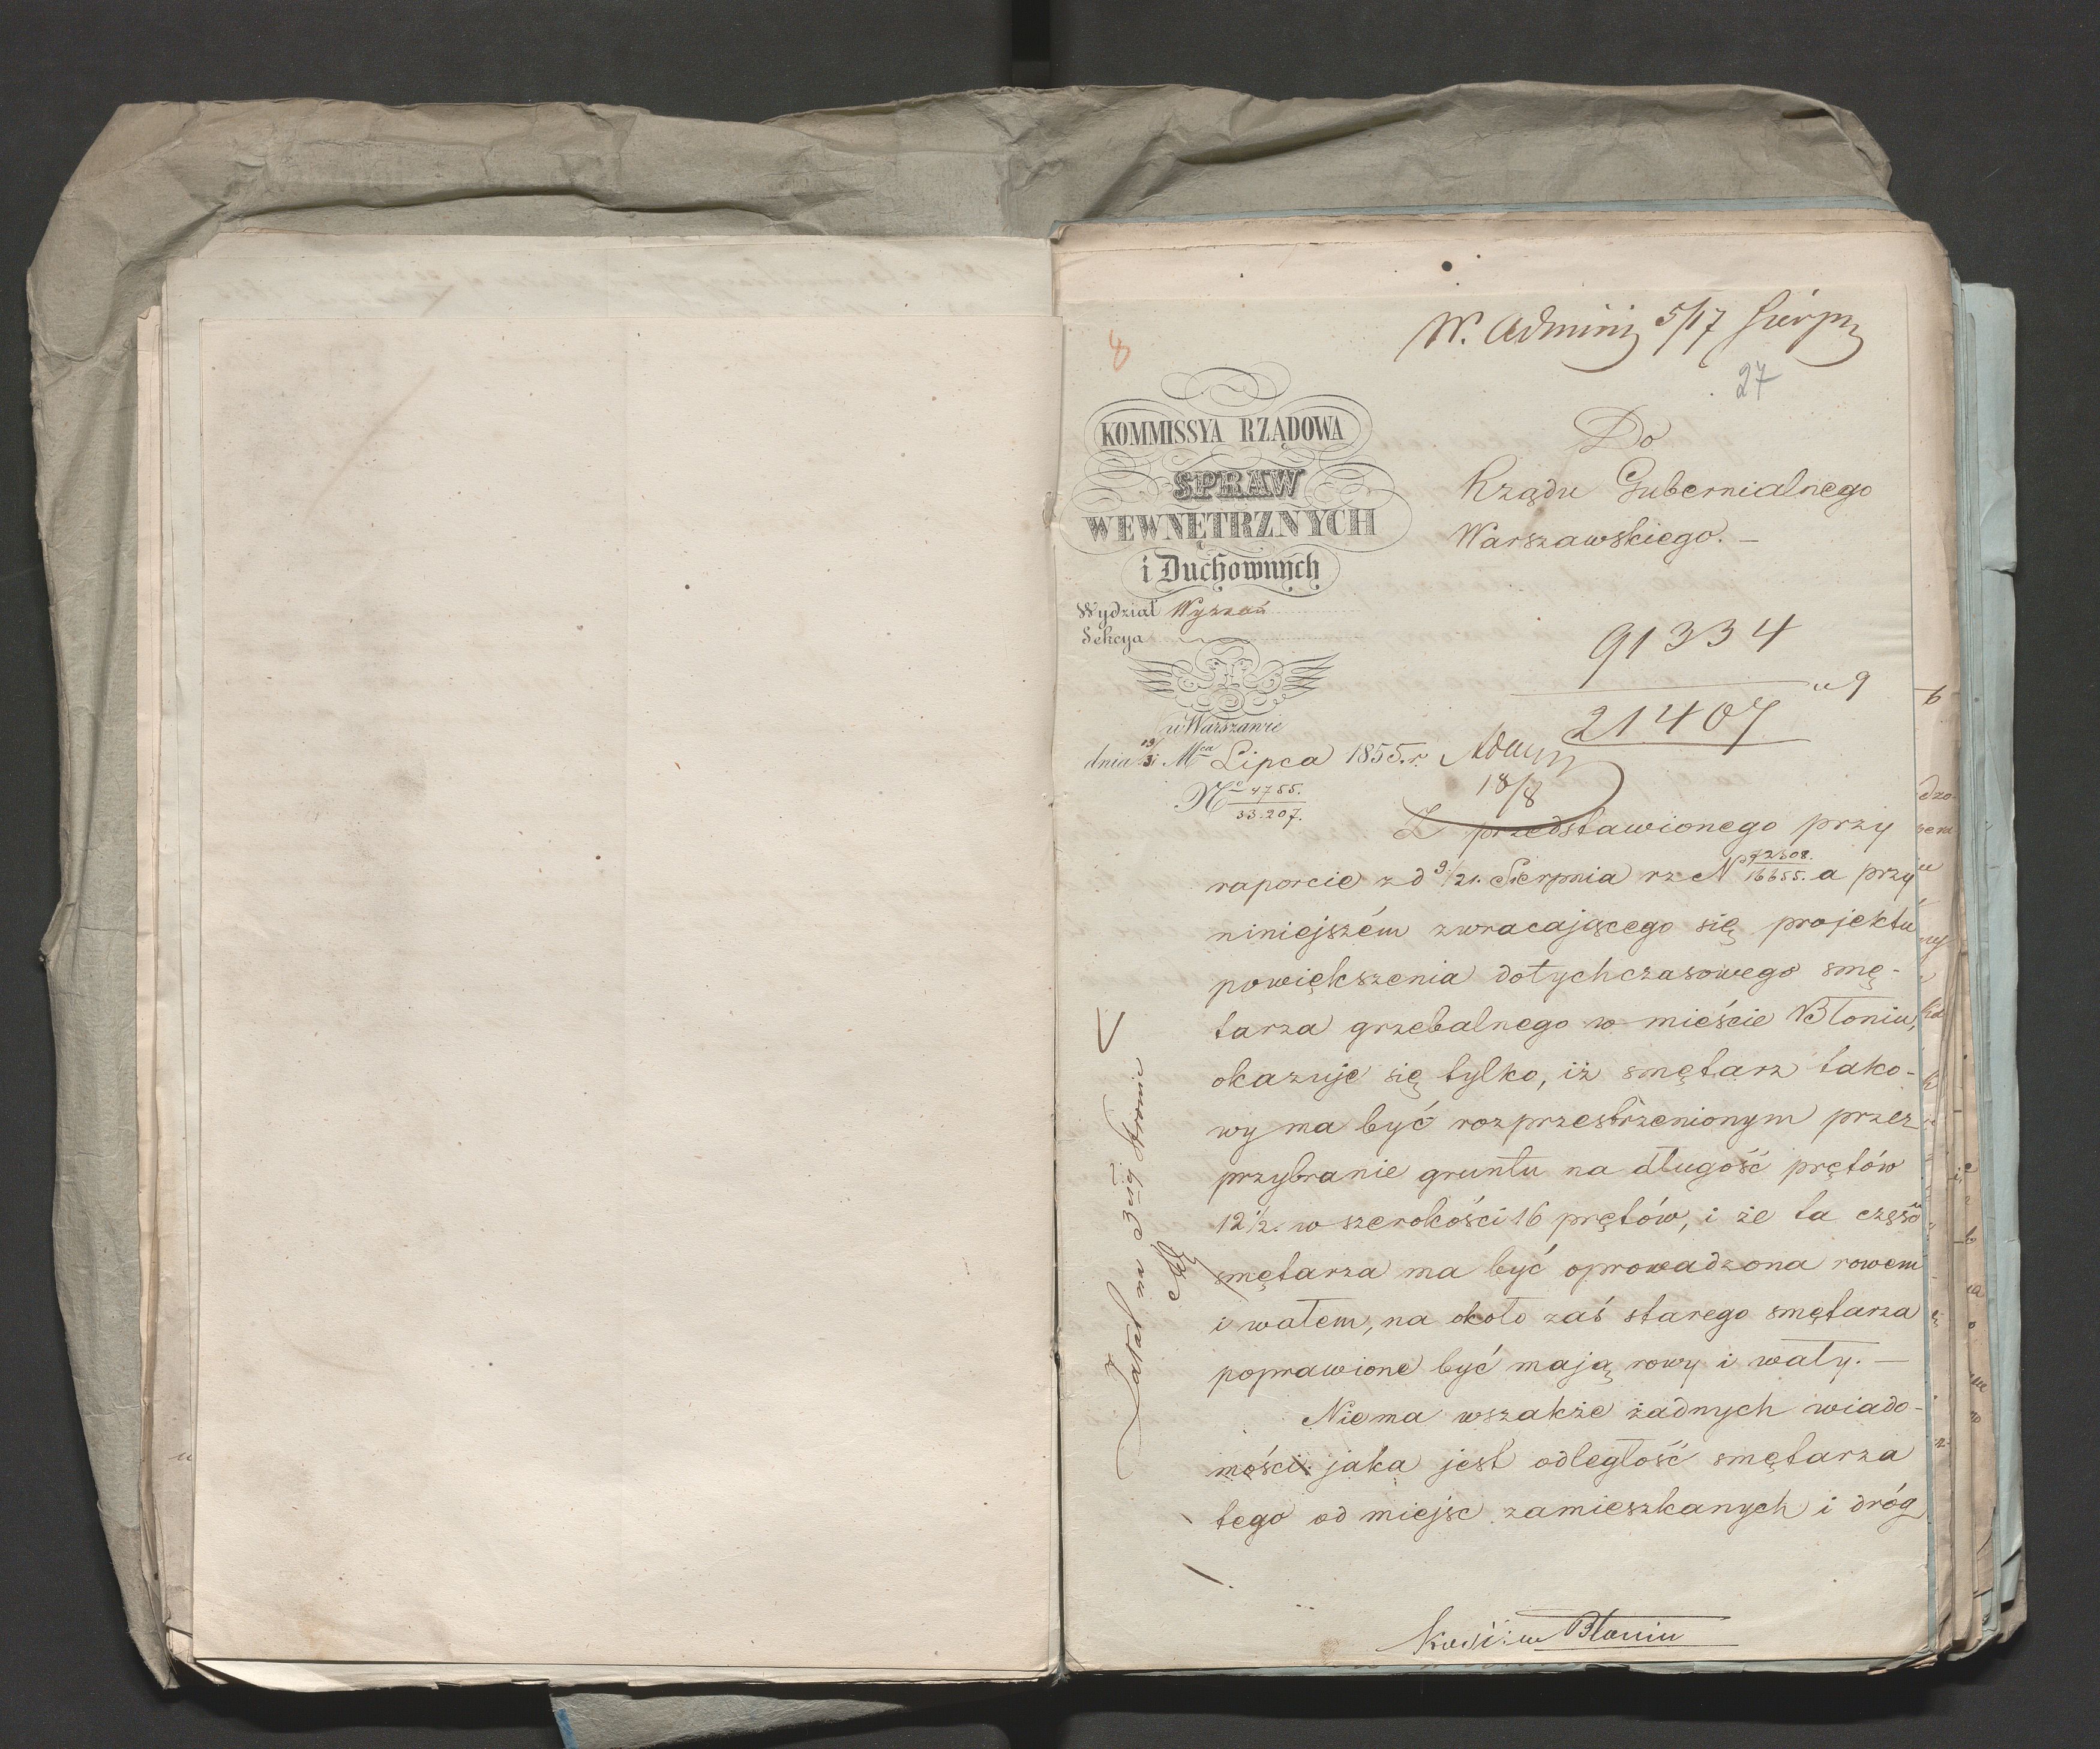 W. Admini 5/17 Sierpn
8
27
KOMMISSYA RZĄDOWA
SPRAW
WEWNĘTRZNYCH
i Duchownych
Wydział Wyznań
Sekcya
w Warszawie
dnia 19/31 Mca Lipca 1855. r.
No 4755.
33.207.
Do
Rządu Gubernialnego
Warszawskiego. —
91334
21407
18/8
Z przedstawionego przy
raporcie z d 9/21. Sierpnia rz N 72308./16655. a przy
niniejszém zwracającego się projektu
powiększenia dotychczasowego smę-
tarza grzebalnego w mieście Błoniu,
okazuje się tylko, iż smętarz tako-
wy ma być rozprzestrzenionym przez
przybranie gruntu na długość prętów
12 1/2. w szerokości 16 prętów, i że ta część
smętarza ma być oprowadzona rowem
i wałem, na około zaś starego smętarza
poprawione być mają rowy i wały. —
Niema wszakże żadnych wiado-
mości jaka jest odległość smętarza
tego od miejsc zamieszkanych i dróg
w Błoniu